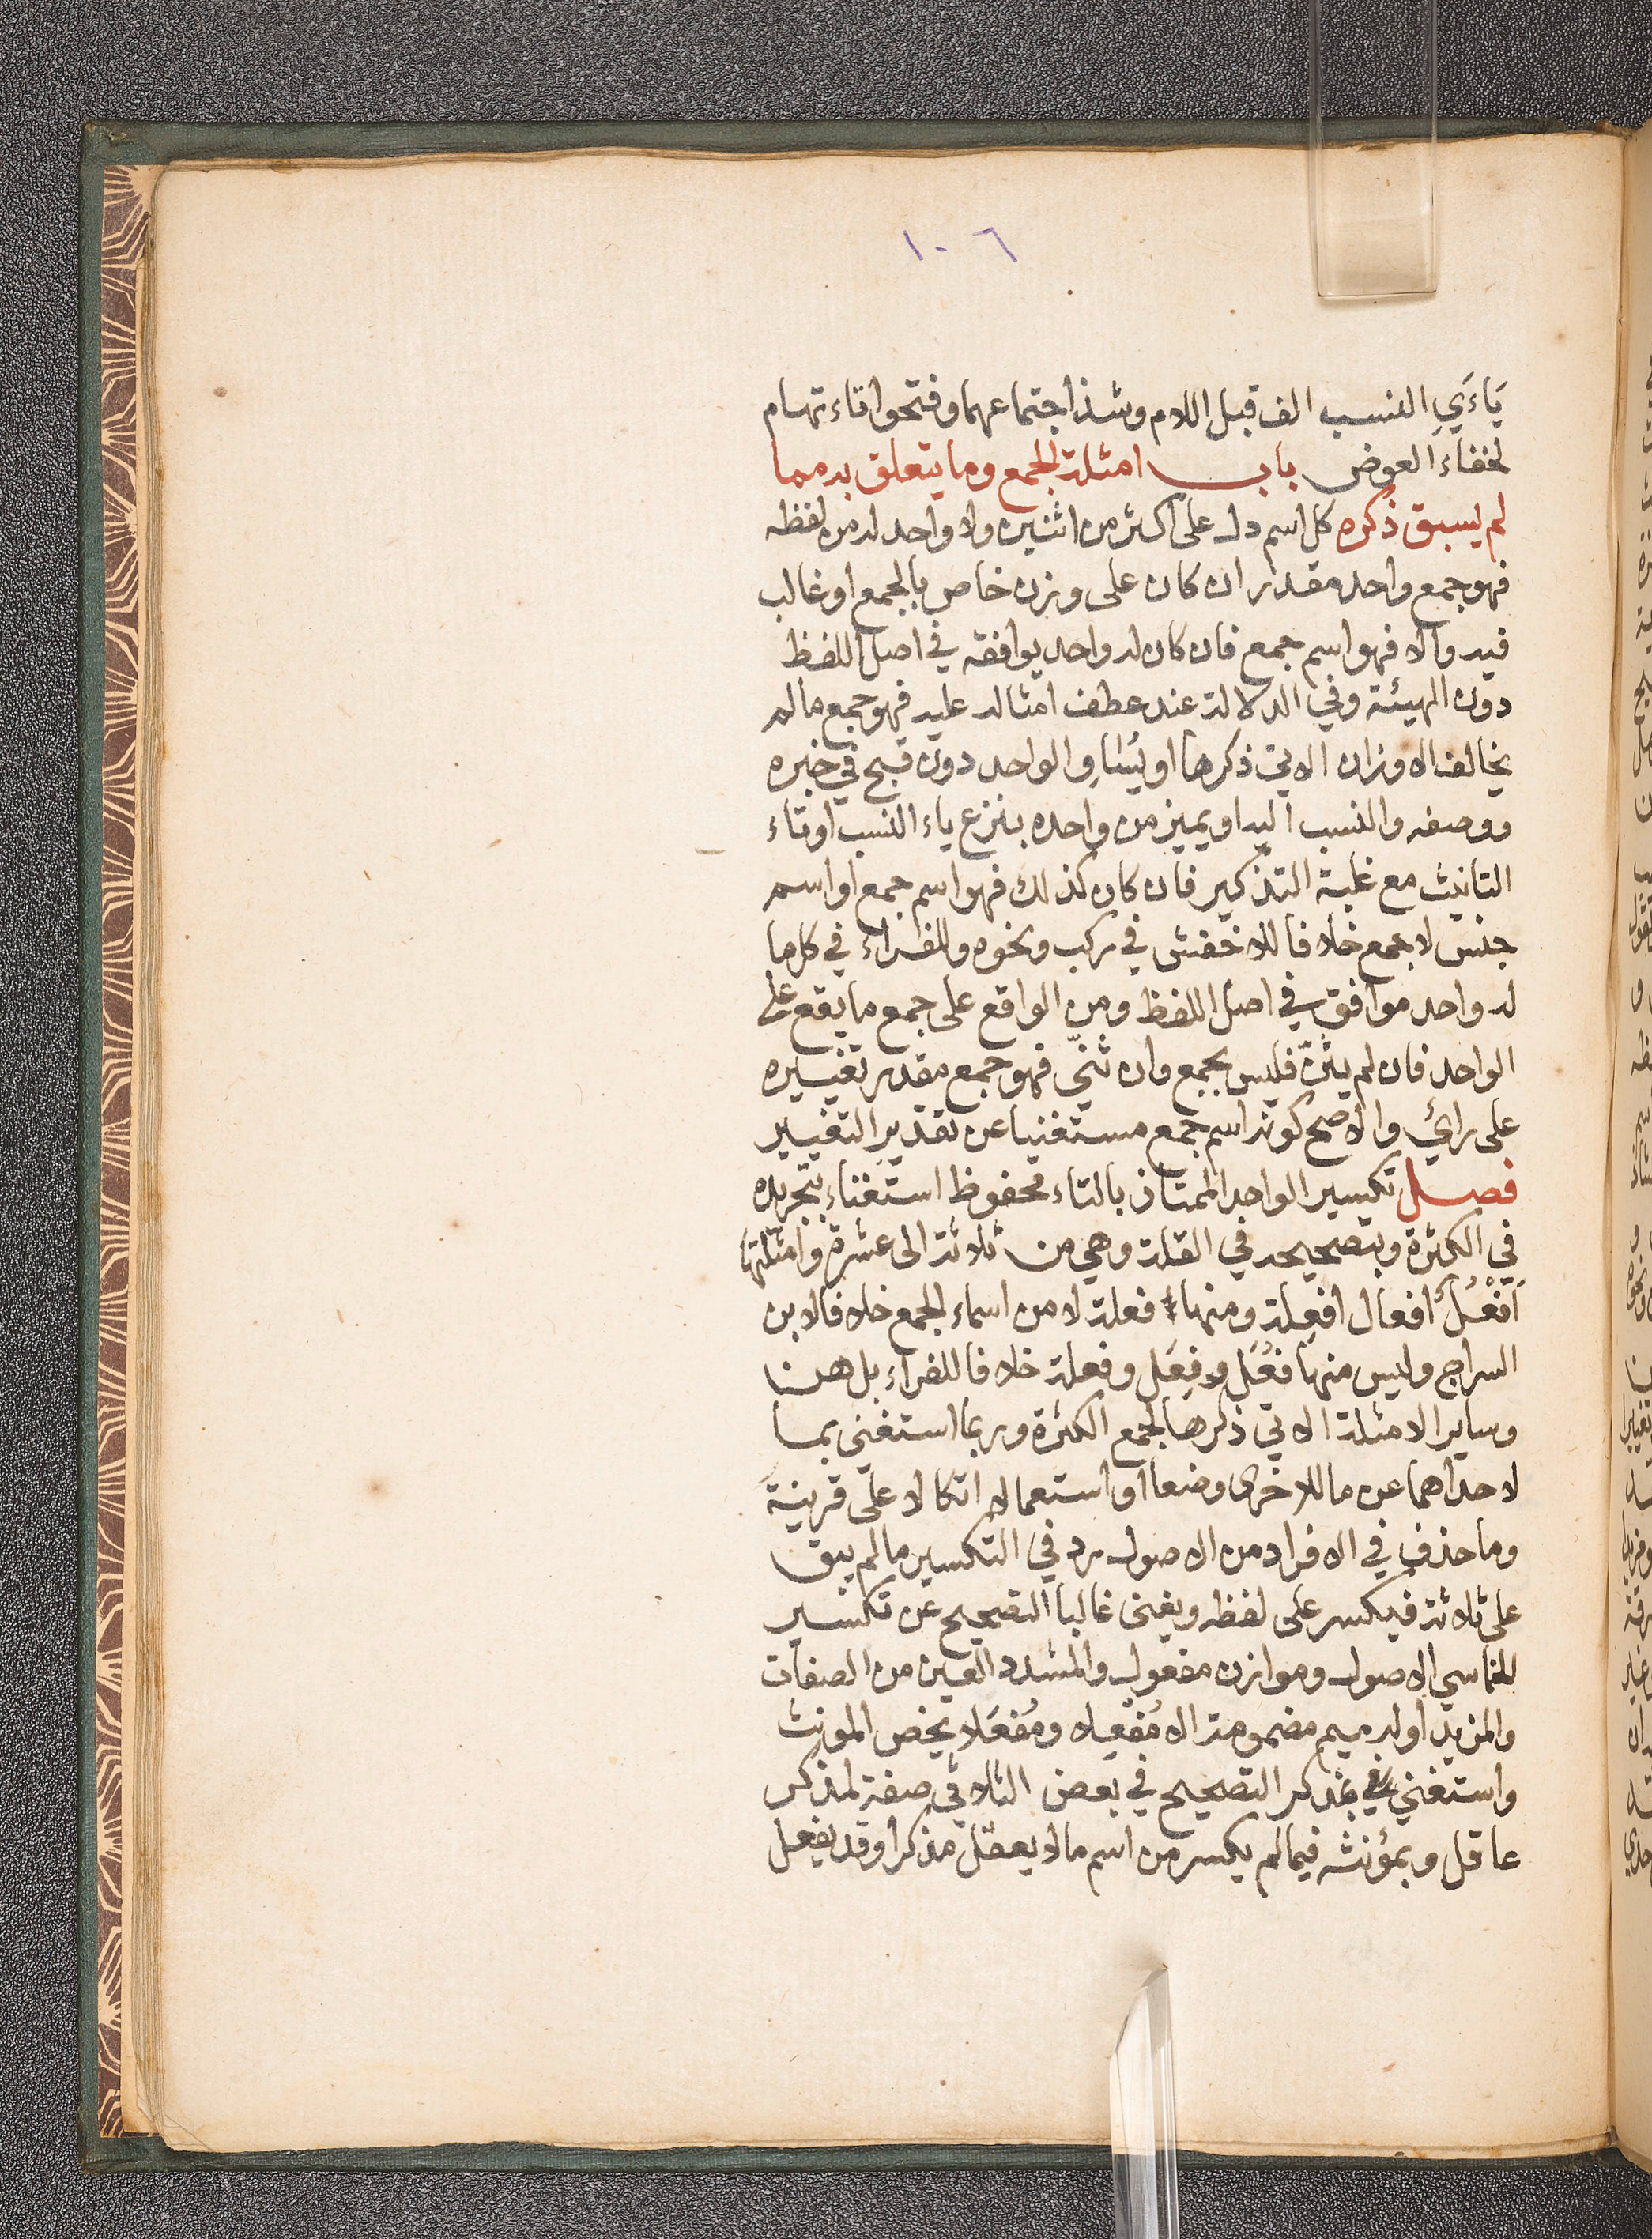 ١٠٦
يَاءَيِ النسب الف قبل اللام وشذ اجتماعهما وفتحوا تاء تهام
لخفاء العوض باب امثلة الجمع وما يتعلق به مما
لم يسبق ذكره كل اسم دل على اكثر من اثنين ولا واحد له من لفظه
فهو جمع واحد مقدر ان كان على وزن خاص بالجمع او غالب
فيه والا فهو اسم جمع فان كان له واحد يوافقه في اصل اللفظ
دون الهيئة وفي الدلالة عند عطف امثاله عليه فهو جمع ما لم
يخالف الاوزان الاتي ذكرها او يُساوِ الواحد دون قبح في خبره
ووصفه والنسب اليه او يميز من واحده بنزع ياء النسب او تاء
التانيث مع غلبة التذكير فان كان كذلك فهو اسم جمع او اسم
جنس لا جمع خلافا للاخفش في ركب ونحوه وللفراء في كل ما
له واحد موافق في اصل اللفظ ومن الواقع على جمع ما يقع على
الواحد فان لم يثنّ فليس بجمع وان ثنّي فهو جمع مقدر تغييره
على رائ والاصح كونه اسم جمع مستغنيا عن تقدير التغيير
فصل تكسير الواحد الممتاز بالتاء محفوظ استغناء بتجريده
في الكثرة وبتصحيحه في القلة وهي من ثلاثة الى عشرة وامثلتها
اَفْعُلُ افعال افعِلة ومنها فعلة لا من اسماء الجمع خلافا لابن
السراج وليس منها فعُل وفِعَل وفعلة خلافا للفراء بل هن
وساير الامثلة الاتي ذكرها لجمع الكثرة وربما استغني بما
لاحداهما عن ما للاخرى وضعا او استعمالا اتكالا على قرينة
وما حذف في الافراد من الاصول رد في التكسير ما لم يبق
على ثلاثة فيكسر على لفظه ويغنى غالبا التصحيح عن تكسير
الخماسي الاصول وموازن مفعول والمشدد العين من الصفات
والمزيد اوله ميم مضمومة الا مُفعِلا ومُفعَلا يخص المونث
واستغني بمذكر التصحيح في بعض الثلاثي صفة لمذكر
عاقل وبمؤنثه فيما لم يكسر من اسم ما لا يعقل مذكرا وقد يفعل